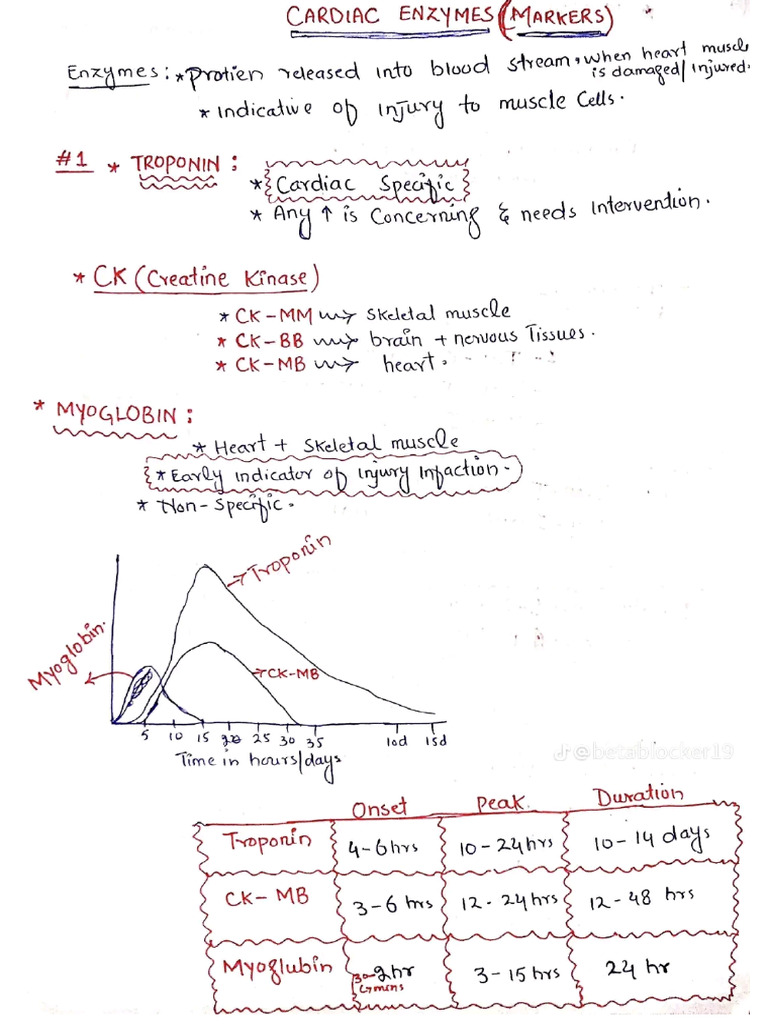 CARDIAC ENZYMES (MARKERS)
Enzymes: * Protien released into blood stream, when heart muscle is damaged/injured.
* Indicative of injury to muscle Cells.
#1 * TROPONIN :
* Cardiac Specific
* Any ↑ is Concerning & needs Intervention.
* CK (Creatine Kinase)
* CK-MM → Skeletal muscle
* CK-BB → brain + nervous Tissues.
* CK-MB → heart.
* MYOGLOBIN :
* Heart + Skeletal muscle
* Early indicator of injury Infaction.
* Non-Specific.
→ Troponin
Myoglobin.
→ CK-MB
5 10 15 20 25 30 35 10d 15d
Time in hours/days
@betablocker19
Onset Peak Duration
Troponin 4-6hrs 10-24hrs 10-14 days
CK-MB 3-6 hrs 12-24hrs 12-48 hrs
Myoglubin 2hr 3-15hrs 24 hr